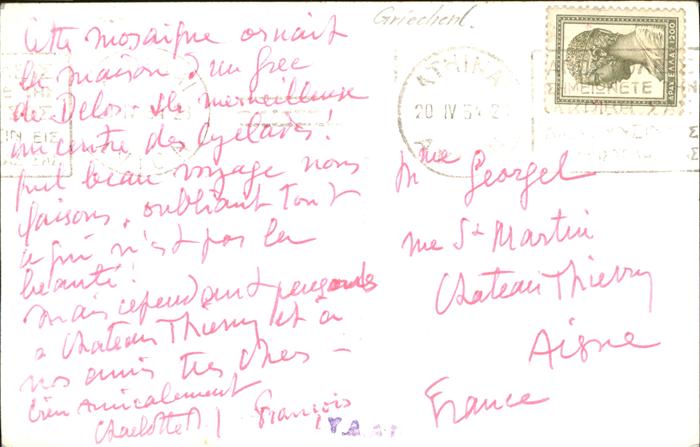 Griechenl.
Cette mosaïque ornait
la maison d'un Grec
de Delos. Ile merveilleuse
au centre des Cyclades!
quel beau voyage nous
faisons, oubliant tout
ce qui n'est pas la
beauté!
mais cependant pensons
à Chateau Thierry et à
nos amis très chers –
bien amicalement
Charlotte
François
ΑΘΗΝΑΙ
20 IV 54
Mme Georgel
rue St Martin
Chateau Thierry
Aisne
France